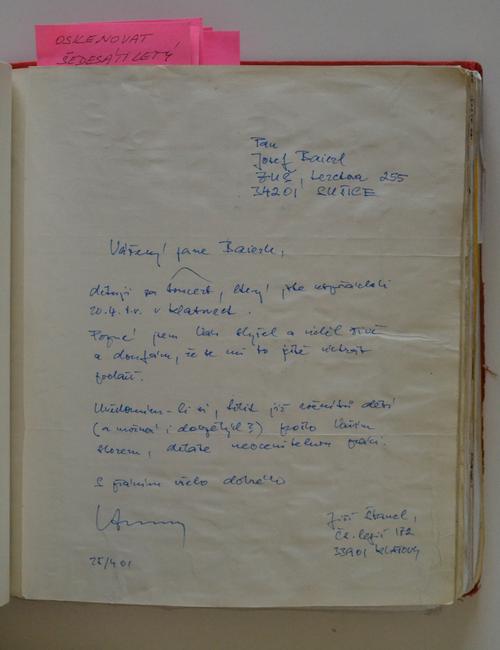 OSKENOVAT
ŠEDESÁTILETÝ
Pan
Josef Baierl
ZUŠ, Lerchova 255
34201 SUŠICE
Vážený pane Baierle,
děkuji za koncert, který jste uspořádali
20.4. t.r. v Klatovech.
Poprvé jsem Vás slyšel a viděl živě
a doufám, že se mi to ještě
podaří.
Uvědomím-li si, kolik již ročníků dětí
(a možná i dospělých?) prošlo Vaším
sborem, děláte neocenitelnou práci.
S přáním všeho dobrého
25/4 01
Jiří Štancl,
Čs. legií 172
33901 KLATOVY